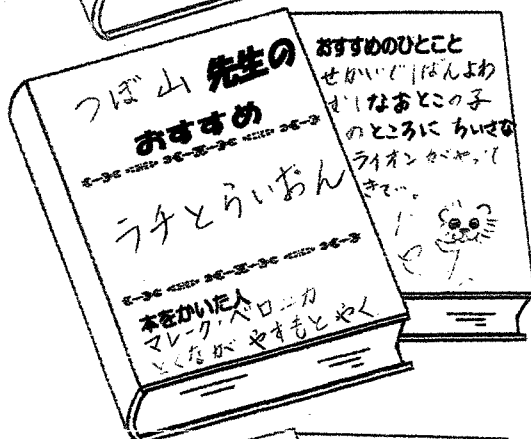 つぼ山 先生の
おすすめ
ラチとらいおん
本をかいた人
マレーク・ベロニカ
とくなが やすもと やく
おすすめのひとこと
せかいで1ばんよわ
むしなおとこの子
のところに ちいさな
ライオンがやって
きて…。